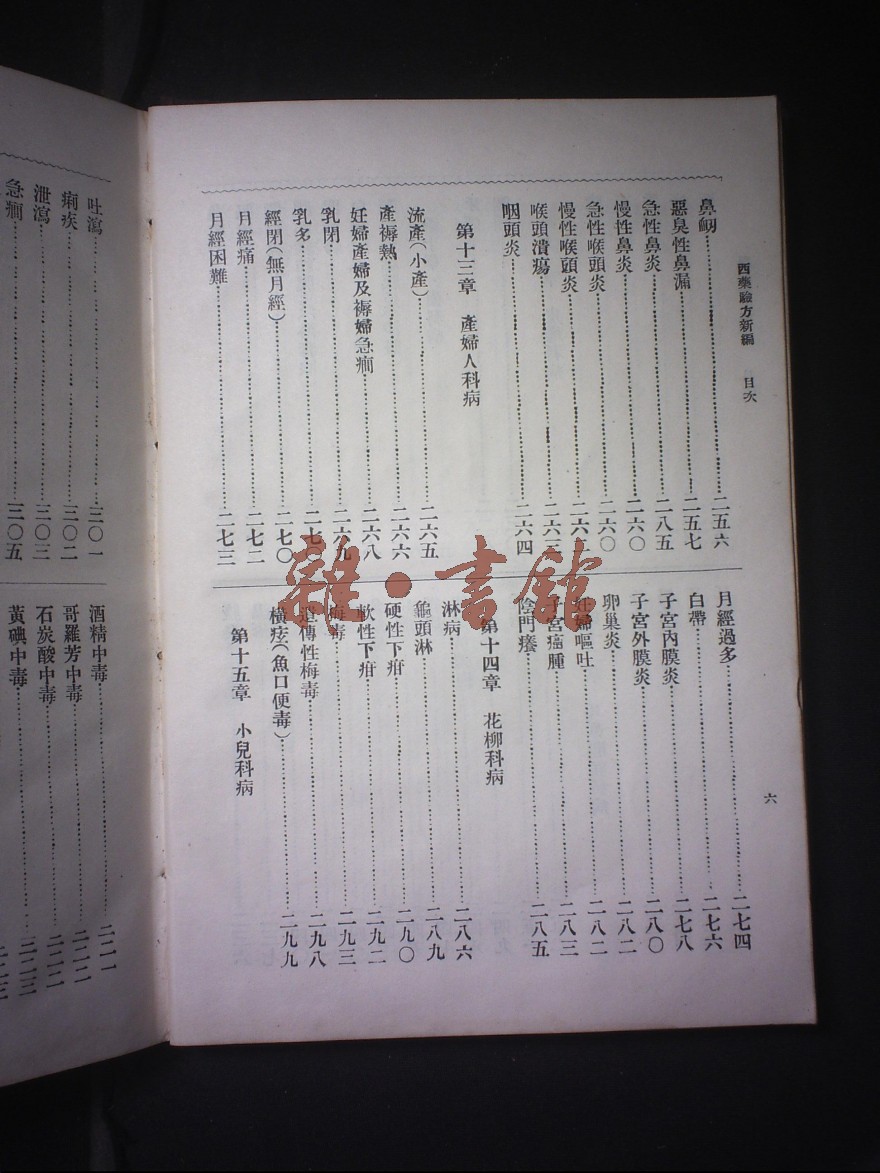 西藥驗方新編 目次
六
鼻衂……二五六
惡臭性鼻漏……二五七
急性鼻炎……二八五
慢性鼻炎……二六〇
急性喉頭炎……二六〇
慢性喉頭炎……二六
喉頭潰瘍……二六三
咽頭炎……二六四
第十三章 產婦人科病
流產(小產)……二六五
產褥熱……二六六
妊婦產婦及褥婦急癎……二六八
乳閉……二六九
乳多……二七〇
經閉(無月經)……二七〇
月經痛……二七二
月經困難……二七三
月經過多……二七四
白帶……二七六
子宮內膜炎……二七八
子宮外膜炎……二八〇
卵巢炎……二八二
妊婦嘔吐……二八二
子宮瘤腫……二八三
陰門癢……二八五
第十四章 花柳科病
淋病……二八六
龜頭淋……二八九
硬性下疳……二九〇
軟性下疳……二九二
梅毒……二九三
遺傳性梅毒……二九八
橫痃(魚口便毒)……二九九
第十五章 小兒科病
吐瀉……三〇一
痢疾……三〇二
泄瀉……三〇三
急癎……三〇五
酒精中毒……
哥羅芳中毒……
石炭酸中毒……
黃碘中毒……
雜·書館